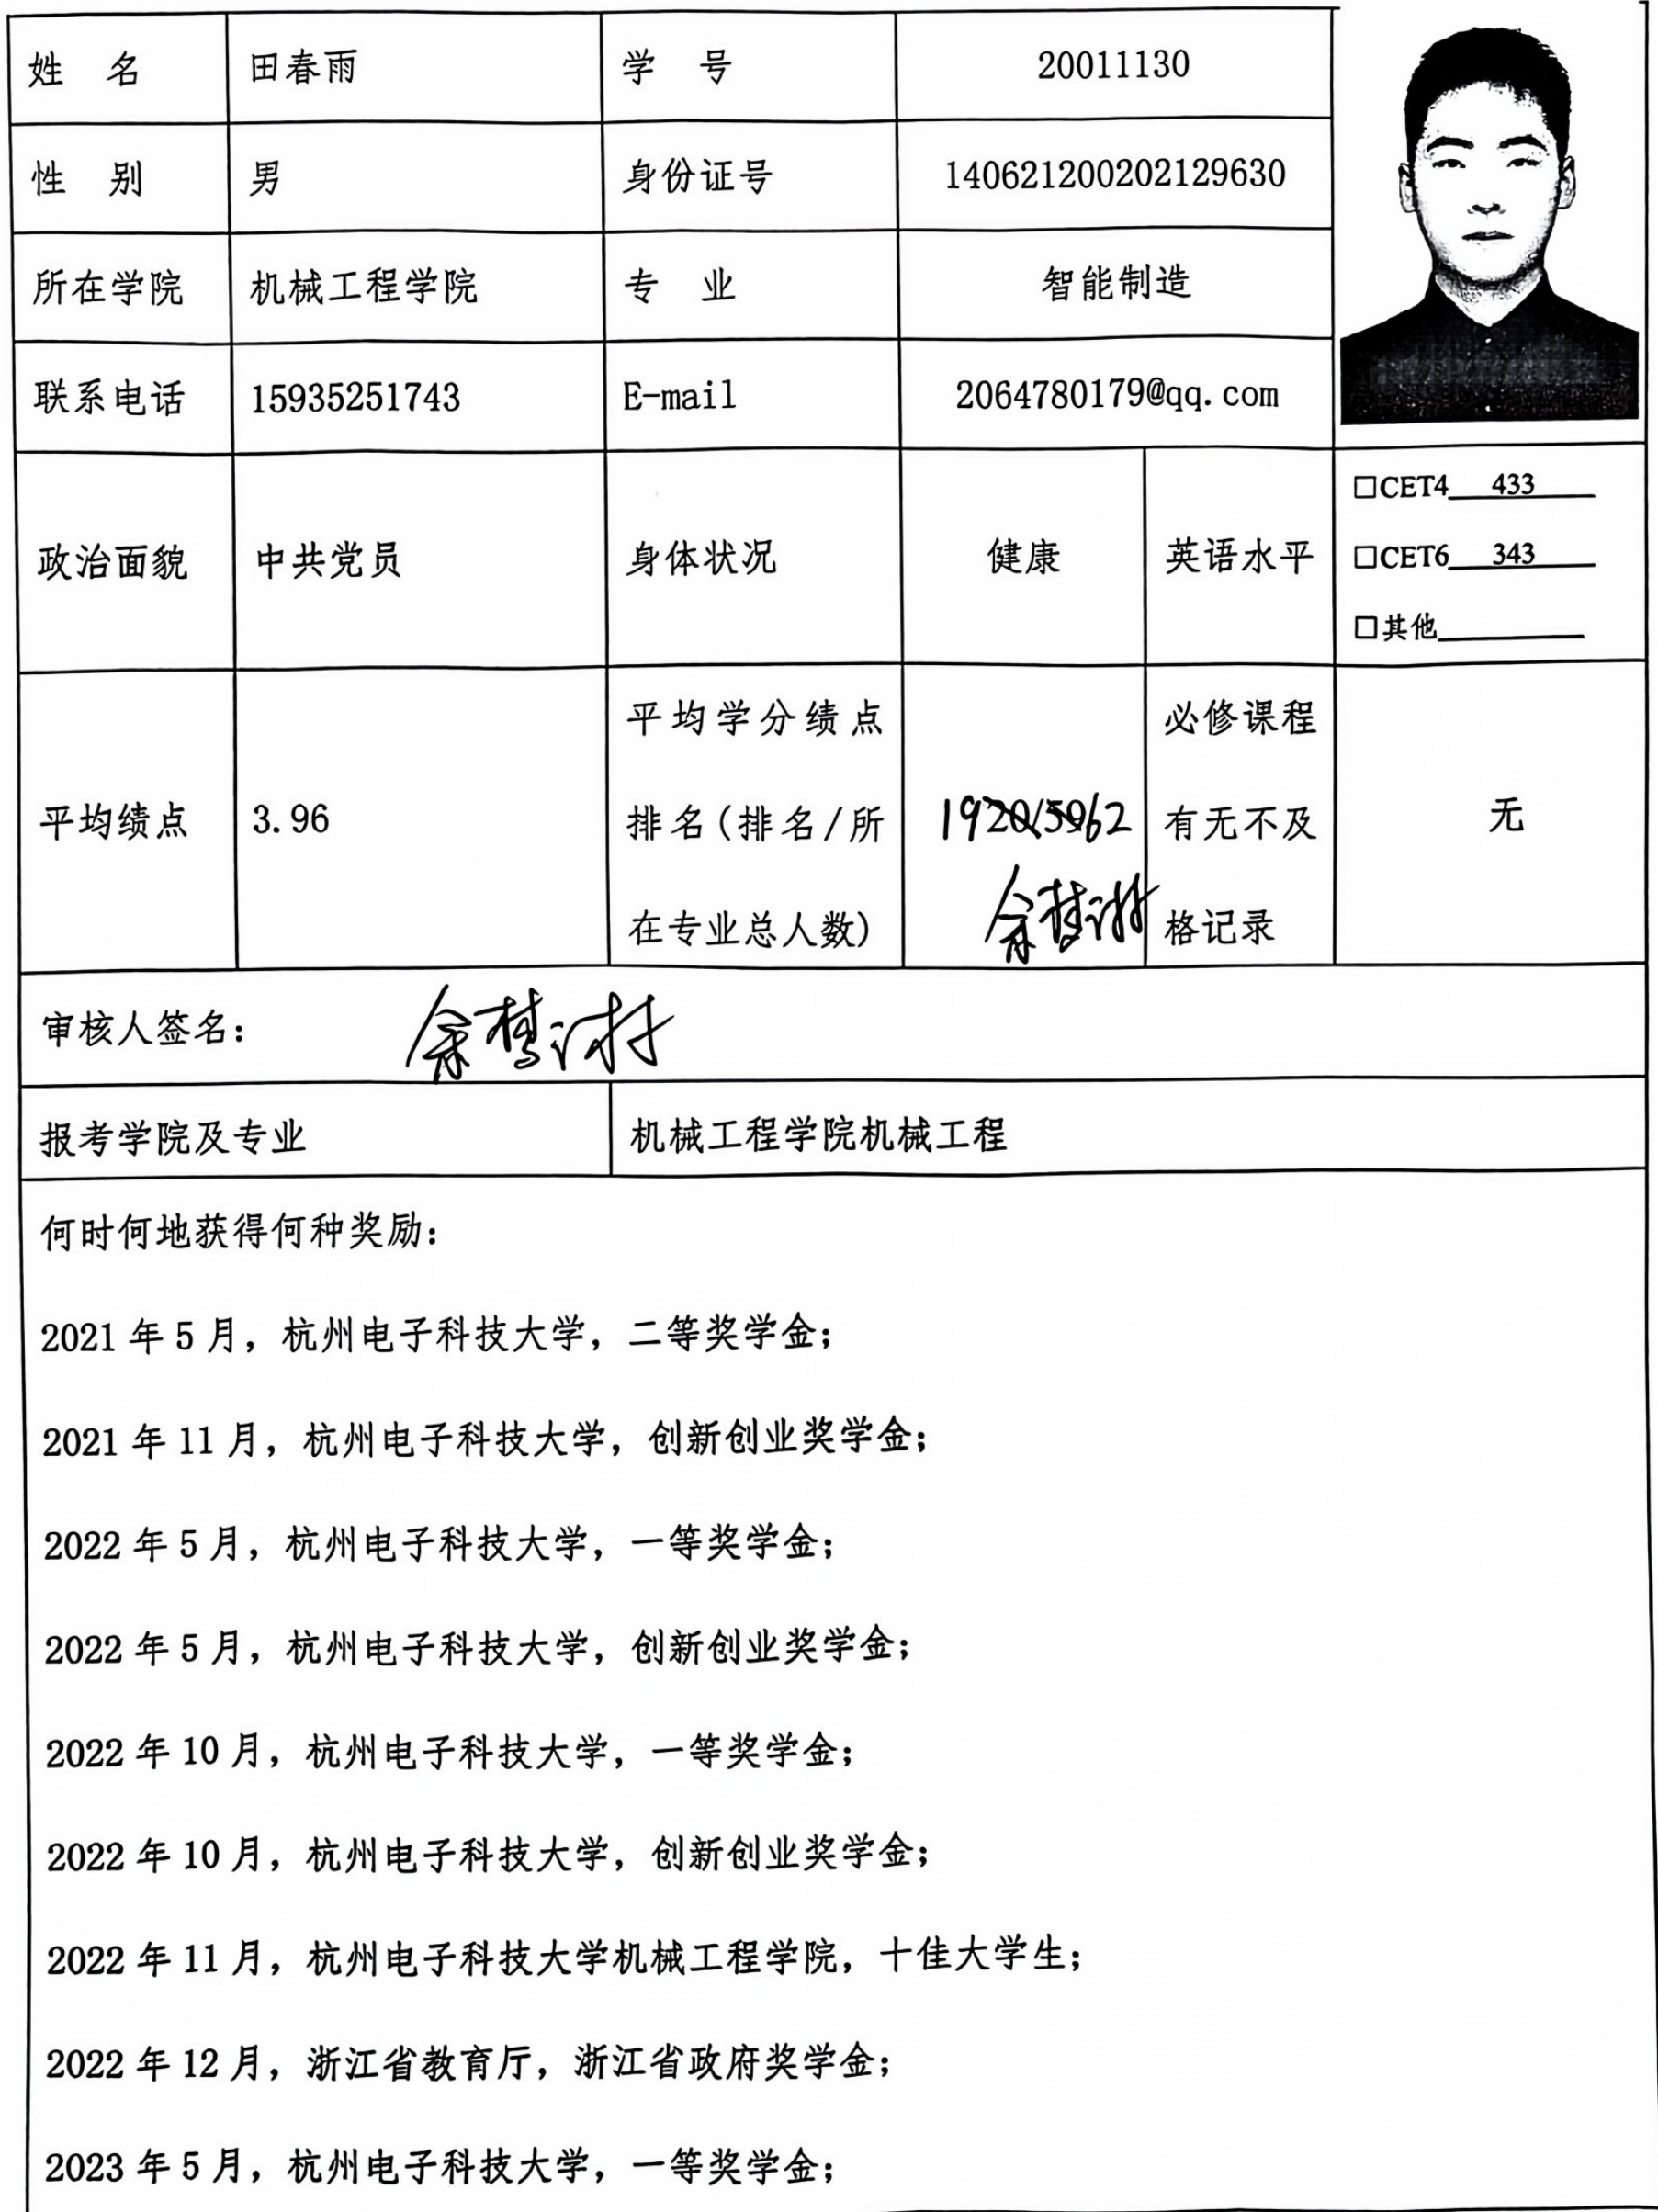 姓 名 田春雨 学 号 20011130
性 别 男 身份证号 140621200202129630
所在学院 机械工程学院 专 业 智能制造
联系电话 15935251743 E-mail 2064780179@qq.com
政治面貌 中共党员 身体状况 健康 英语水平
□CET4 433
□CET6 343
□其他
平均绩点 3.96
平均学分绩点
排名(排名/所
在专业总人数)
必修课程
有无不及
格记录
无
审核人签名:
报考学院及专业 机械工程学院机械工程
何时何地获得何种奖励:
2021 年 5 月，杭州电子科技大学，二等奖学金;
2021 年 11 月，杭州电子科技大学，创新创业奖学金;
2022 年 5 月，杭州电子科技大学，一等奖学金;
2022 年 5 月，杭州电子科技大学，创新创业奖学金;
2022 年 10 月，杭州电子科技大学，一等奖学金;
2022 年 10 月，杭州电子科技大学，创新创业奖学金;
2022 年 11 月，杭州电子科技大学机械工程学院，十佳大学生;
2022 年 12 月，浙江省教育厅，浙江省政府奖学金;
2023 年 5 月，杭州电子科技大学，一等奖学金;